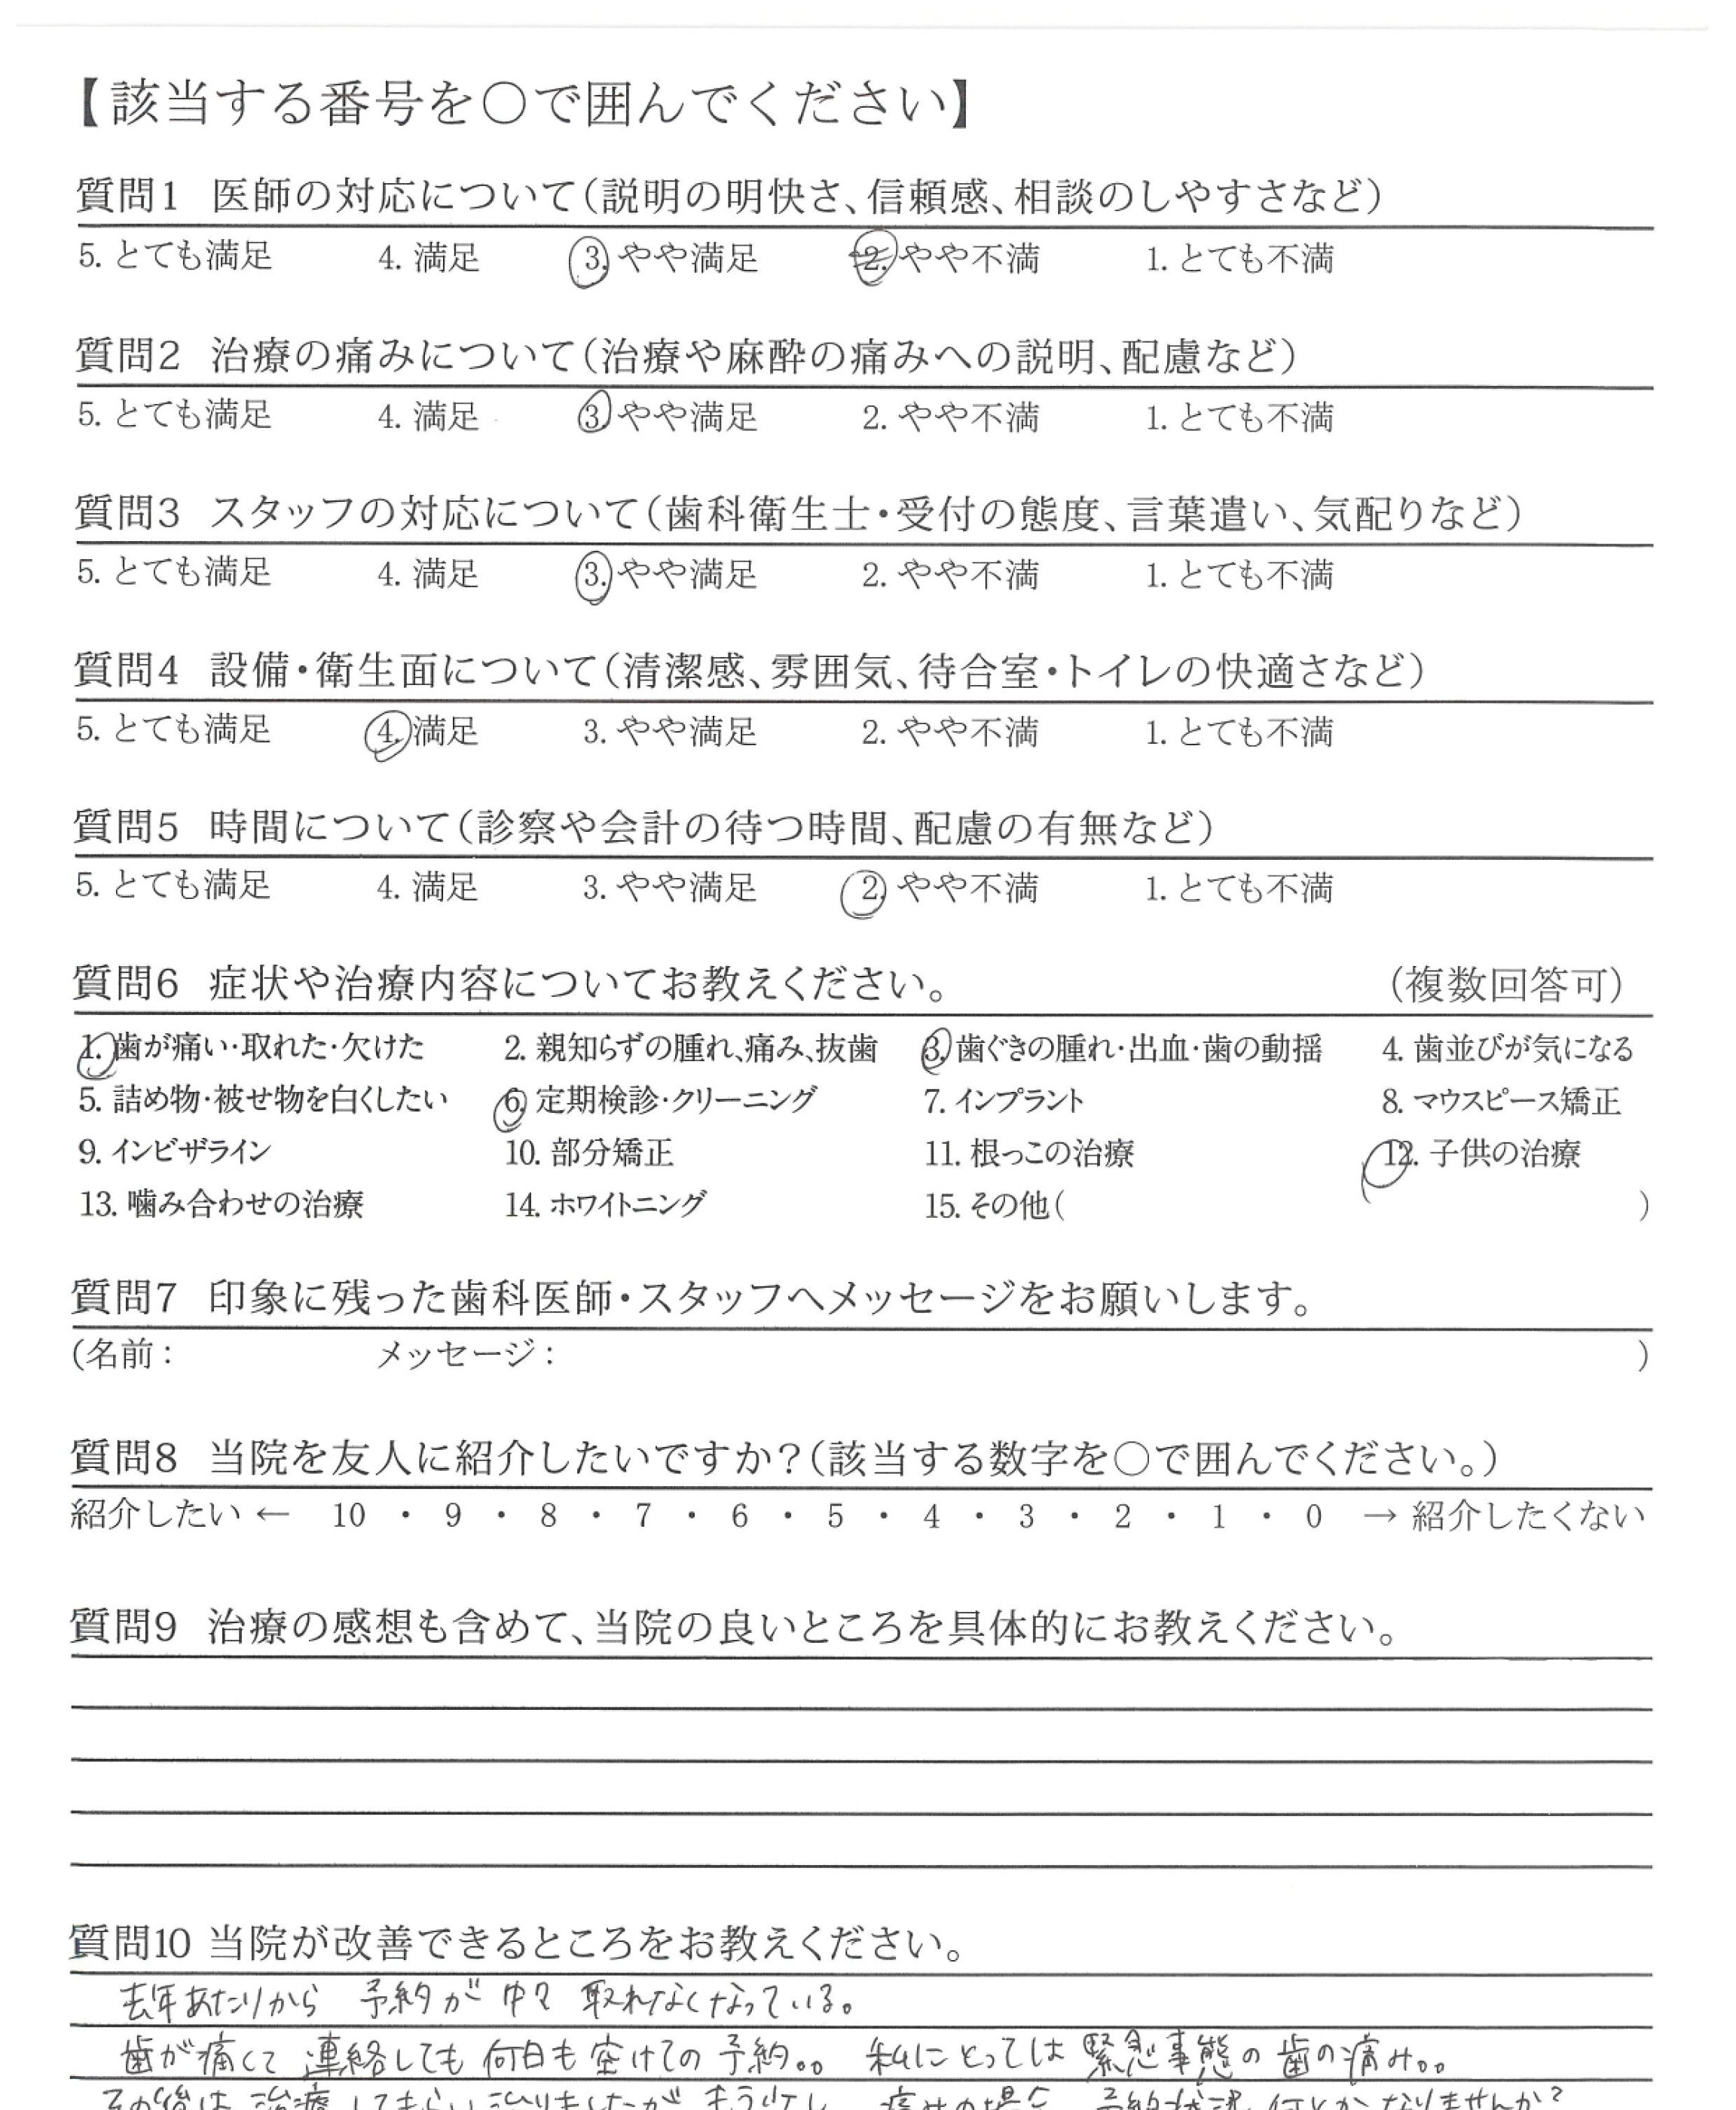 【該当する番号を○で囲んでください】
質問1 医師の対応について(説明の明快さ、信頼感、相談のしやすさなど)
5. とても満足 4. 満足 3. やや満足 2. やや不満 1. とても不満
質問2 治療の痛みについて(治療や麻酔の痛みへの説明、配慮など)
5. とても満足 4. 満足 3. やや満足 2. やや不満 1. とても不満
質問3 スタッフの対応について(歯科衛生士・受付の態度、言葉遣い、気配りなど)
5. とても満足 4. 満足 3. やや満足 2. やや不満 1. とても不満
質問4 設備・衛生面について(清潔感、雰囲気、待合室・トイレの快適さなど)
5. とても満足 4. 満足 3. やや満足 2. やや不満 1. とても不満
質問5 時間について(診察や会計の待つ時間、配慮の有無など)
5. とても満足 4. 満足 3. やや満足 2. やや不満 1. とても不満
質問6 症状や治療内容についてお教えください。 (複数回答可)
1. 歯が痛い・取れた・欠けた 2. 親知らずの腫れ、痛み、抜歯 3. 歯ぐきの腫れ・出血・歯の動揺 4. 歯並びが気になる
5. 詰め物・被せ物を白くしたい 6. 定期検診・クリーニング 7. インプラント 8. マウスピース矯正
9. インビザライン 10. 部分矯正 11. 根っこの治療 12. 子供の治療
13. 噛み合わせの治療 14. ホワイトニング 15. その他( )
質問7 印象に残った歯科医師・スタッフへメッセージをお願いします。
(名前: メッセージ: )
質問8 当院を友人に紹介したいですか?(該当する数字を○で囲んでください。)
紹介したい ← 10 ・ 9 ・ 8 ・ 7 ・ 6 ・ 5 ・ 4 ・ 3 ・ 2 ・ 1 ・ 0 → 紹介したくない
質問9 治療の感想も含めて、当院の良いところを具体的にお教えください。
質問10 当院が改善できるところをお教えください。
去年あたりから 予約が 中々 取れなくなっている。
歯が痛くて 連絡しても 何日も 空けての 予約。。 私にとっては 緊急事態の 歯の痛み。。
その後は 治療してもらい 治りましたが もう少し 痛せの場合 予約状況 何とかなりませんか?